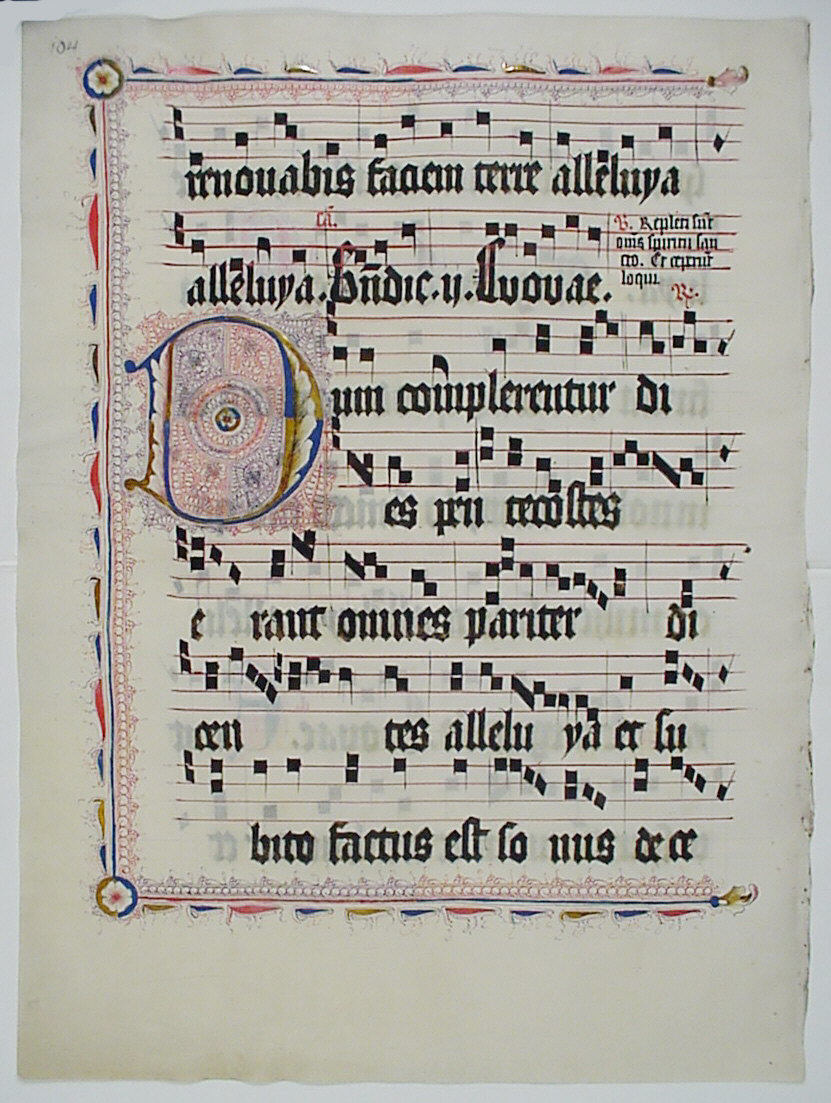 104
renouabis faciem terre alleluya
alleluya. Bn̄dic. ij. Euouae.
V. Repleti sūt
om̄s spiritu san
cto. Et ceperūt
loqui. R.
Dum complerentur di
es pen tecostes
e rant omnes pariter di
cen tes allelu ya et su
bito factus est so nus de ce